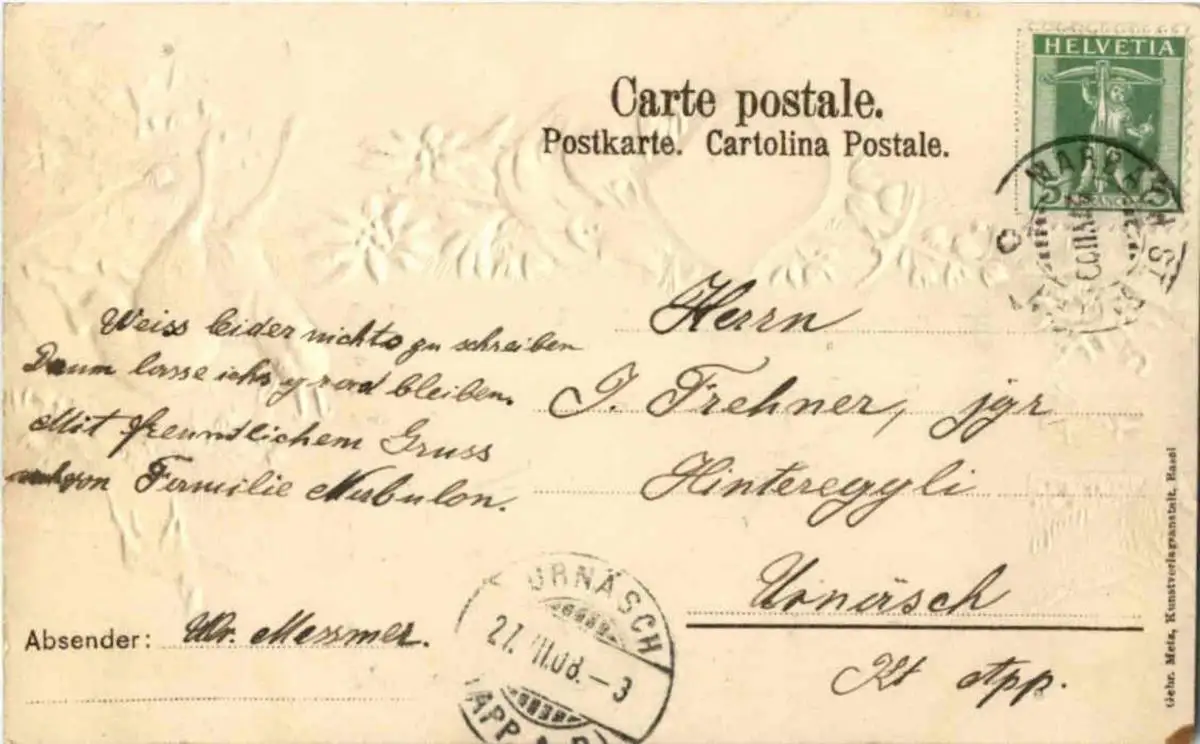 Carte postale.
Postkarte. Cartolina Postale.
HELVETIA
5
MARBACH ST
Weiss leider nichts zu schreiben
Daum lasse ichs grad bleiben.
Mit freundtlichem Gruss
von Familie Nubulon.
Herrn
J. Frehner, jgr
Htintereggli
Urnäsch
Kt App.
Absender: Messmer.
URNÄSCH
27.VII.08.-3
Gebr. Metz, Kunstverlagsanstalt, Basel